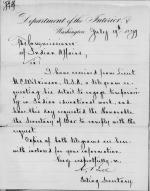 Department of the Interior,
Washington, July 19th 1879
The Commissioner
of Indian Affairs,
Sir:
I have received from Lieut
R. H. Pratt, U.S.A., a telegram re-
questing his detail to engage tempora-
rily in Indian educational work, and
have this day requested the Honorable
the Secretary of War to comply with the
request.
Copies of both telegrams are here-
with inclosed for your information.
Very respectfully,
A. Bell
Acting Secretary